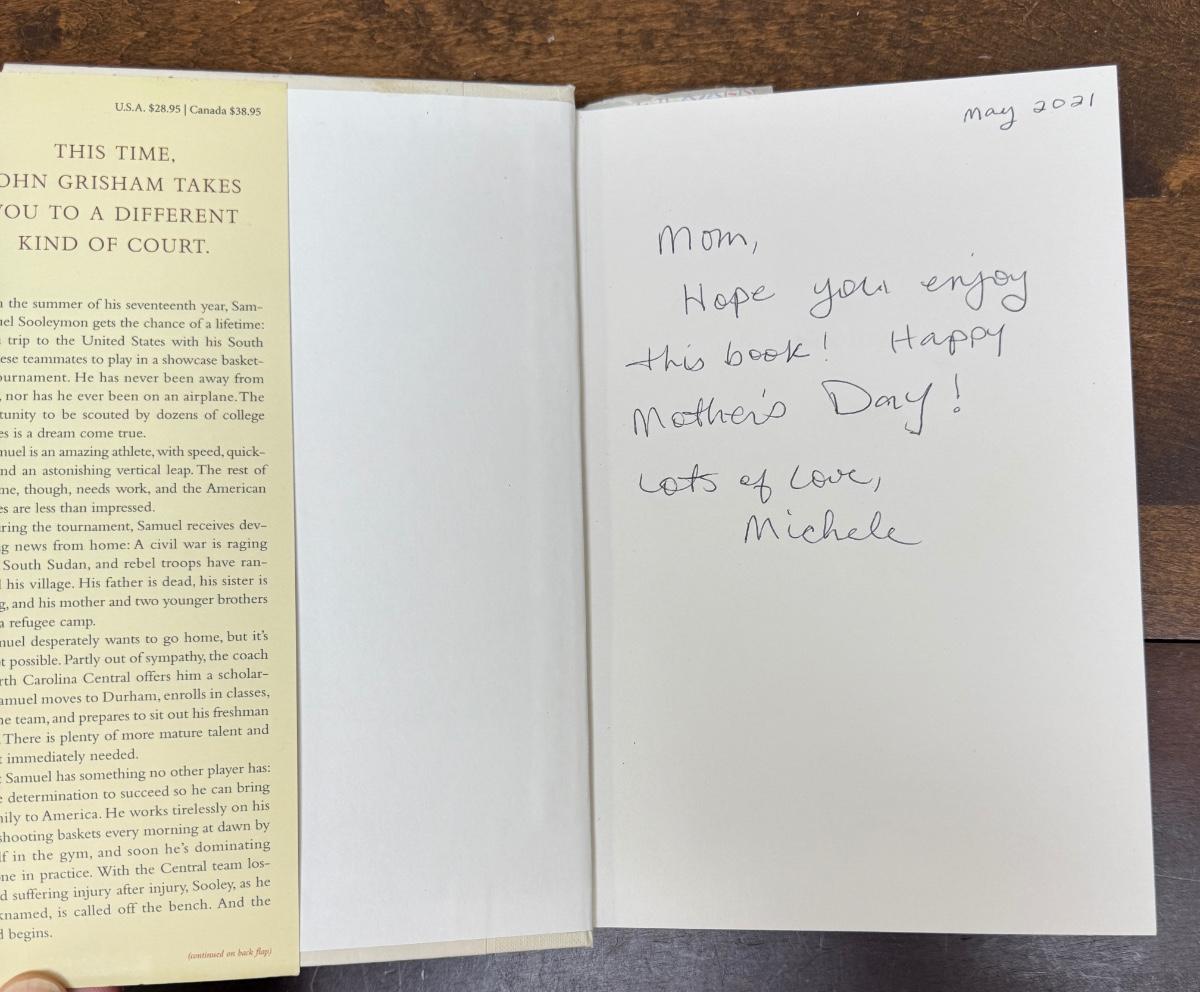 U.S.A. $28.95 | Canada $38.95
THIS TIME,
OHN GRISHAM TAKES
YOU TO A DIFFERENT
KIND OF COURT.
n the summer of his seventeenth year, Sam-
uel Sooleymon gets the chance of a lifetime:
trip to the United States with his South
ese teammates to play in a showcase basket-
ournament. He has never been away from
, nor has he ever been on an airplane. The
tunity to be scouted by dozens of college
es is a dream come true.
nuel is an amazing athlete, with speed, quick-
nd an astonishing vertical leap. The rest of
me, though, needs work, and the American
es are less than impressed.
ring the tournament, Samuel receives dev-
g news from home: A civil war is raging
South Sudan, and rebel troops have ran-
l his village. His father is dead, his sister is
g, and his mother and two younger brothers
a refugee camp.
nuel desperately wants to go home, but it's
t possible. Partly out of sympathy, the coach
rth Carolina Central offers him a scholar-
amuel moves to Durham, enrolls in classes,
he team, and prepares to sit out his freshman
. There is plenty of more mature talent and
t immediately needed.
: Samuel has something no other player has:
e determination to succeed so he can bring
mily to America. He works tirelessly on his
shooting baskets every morning at dawn by
lf in the gym, and soon he's dominating
ne in practice. With the Central team los-
d suffering injury after injury, Sooley, as he
knamed, is called off the bench. And the
d begins.
(continued on back flap)
May 2021
Mom,
Hope you enjoy
this book! Happy
Mother's Day!
Lots of Love,
Michele